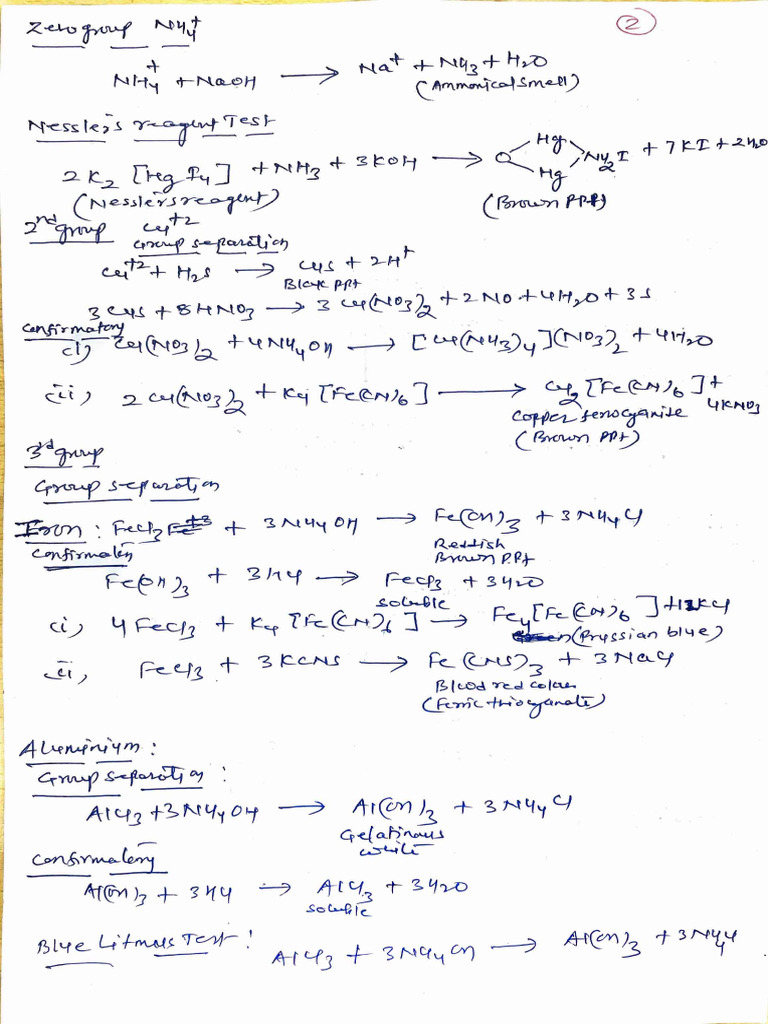 Zero group NH4+
(2)
NH4+ + NaOH → Na+ + NH3 + H2O
(Ammonical smell)
Nessler's reagent Test
2K2 [HgI4] + NH3 + 3KOH → O Hg Hg NH2I + 7KI + 2H2O
(Nesslers reagent)
(Brown PPt)
2nd group Cu+2
Group separation
Cu+2 + H2S → CuS + 2H+
Black PPt
3CuS + 8HNO3 → 3Cu(NO3)2 + 2NO + 4H2O + 3S
Confirmatory
(i) Cu(NO3)2 + 4NH4OH → [Cu(NH3)4](NO3)2 + 4H2O
(ii) 2Cu(NO3)2 + K4[Fe(CN)6] → Cu2[Fe(CN)6] + 4KNO3
Copper ferrocyanite
(Brown PPt)
3rd group
Group separation
Iron: FeCl3 + 3NH4OH → Fe(OH)3 + 3NH4Cl
Reddish
Brown P.Pt
Confirmatory
Fe(OH)3 + 3HCl → FeCl3 + 3H2O
soluble
(i) 4FeCl3 + K4[Fe(CN)6] → Fe4[Fe(CN)6] + 12KCl
(Pryssian blue)
ii, FeCl3 + 3KCNS → Fe(CNS)3 + 3NaCl
Blood red colour
(Ferric thiocyanate)
Aluminium:
Group separation:
AlCl3 + 3NH4OH → Al(OH)3 + 3NH4Cl
Gelatinous
white
Confirmatory
Al(OH)3 + 3HCl → AlCl3 + 3H2O
soluble
Blue Litmus Test:
AlCl3 + 3NH4OH → Al(OH)3 + 3NH4Cl